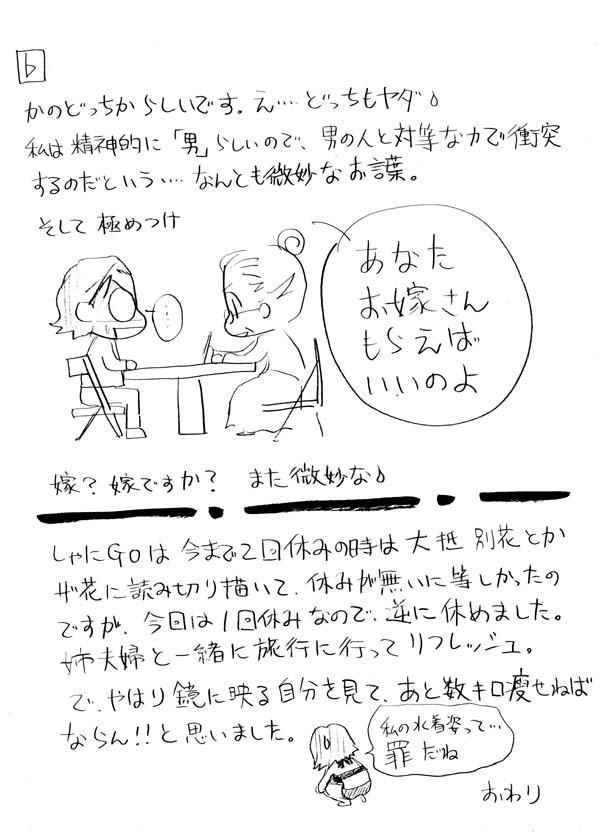 6
かのどっちからしいです。え‥‥どっちもヤダ♪
私は精神的に「男」らしいので、男の人と対等な力で衝突
するのだという‥‥なんとも微妙なお言葉。
そして極めつけ
‥‥
あなた
お嫁さん
もらえば
いいのよ
嫁？嫁ですか？ また微妙な♪
しゃにGoは今まで2回休みの時は大抵別花とか
ザ花に読み切り描いて、休みが無いに等しかったの
ですが、今回は1回休みなので、逆に休めました。
姉夫婦と一緒に旅行に行ってリフレッシュ。
で、やはり鏡に映る自分を見て、あと数キロ痩せねば
ならん!!と思いました。
私の水着姿って‥
罪だね
おわり